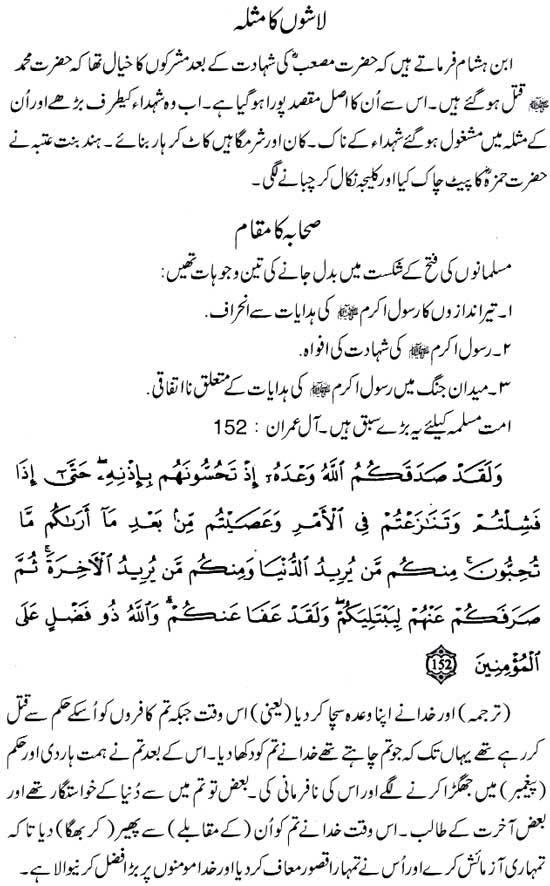 لاشوں کا مثلہ
ابن ہشام فرماتے ہیں کہ حضرت مصعبؓ کی شہادت کے بعد مشرکوں کا خیال تھا کہ حضرت محمد
ﷺ قتل ہوگئے ہیں۔ اس سے اُن کا اصل مقصد پورا ہو گیا ہے۔ اب وہ شہداء کیطرف بڑھے اور اُن
کے مثلہ میں مشغول ہو گئے شہداء کے ناک۔ کان اور شرمگاہیں کاٹ کر ہار بنائے۔ ہند بنت عتبہ نے
حضرت حمزہؓ کا پیٹ چاک کیا اور کلیجہ نکال کر چبانے لگی۔
صحابہ کا مقام
مسلمانوں کی فتح کے شکست میں بدل جانے کی تین وجوہات تھیں:
۱۔ تیراندازوں کا رسول اکرم ﷺ کی ہدایات سے انحراف.
۲۔ رسول اکرم ﷺ کی شہادت کی افواہ.
۳۔ میدان جنگ میں رسول اکرم ﷺ کی ہدایات کے متعلق نااتفاقی.
امت مسلمہ کیلئے یہ بڑے سبق ہیں۔ آل عمران : 152
وَلَقَدْ صَدَقَكُمُ اللَّهُ وَعْدَهُۥٓ إِذْ تَحُسُّونَهُم بِإِذْنِهِۦ ۖ حَتَّىٰٓ إِذَا
فَشِلْتُمْ وَتَنَٰزَعْتُمْ فِى الْأَمْرِ وَعَصَيْتُم مِّنۢ بَعْدِ مَآ أَرَىٰكُم مَّا
تُحِبُّونَ ۚ مِنكُم مَّن يُرِيدُ الدُّنْيَا وَمِنكُم مَّن يُرِيدُ الْآخِرَةَ ۚ ثُمَّ
صَرَفَكُمْ عَنْهُمْ لِيَبْتَلِيَكُمْ ۖ وَلَقَدْ عَفَا عَنكُمْ ۗ وَاللَّهُ ذُو فَضْلٍ عَلَى
الْمُؤْمِنِينَ 152
(ترجمہ) اور خدا نے اپنا وعدہ سچا کر دیا (یعنی) اس وقت جبکہ تم کافروں کو اُسکے حکم سے قتل
کر رہے تھے یہاں تک کہ جو تم چاہتے تھے خدا نے تم کو دکھا دیا۔ اس کے بعد تم نے ہمت ہار دی اور حکم
(پیغمبر) میں جھگڑا کرنے لگے اور اس کی نافرمانی کی۔ بعض تو تم میں سے دُنیا کے خواستگار تھے اور
بعض آخرت کے طالب۔ اس وقت خدا نے تم کو اُن (کے مقابلے) سے پھیر (کر بھگا) دیا تا کہ
تمہاری آزمائش کرے اور اُس نے تمہارا قصور معاف کر دیا اور خدا مومنوں پر بڑا فضل کرنیوالا ہے۔